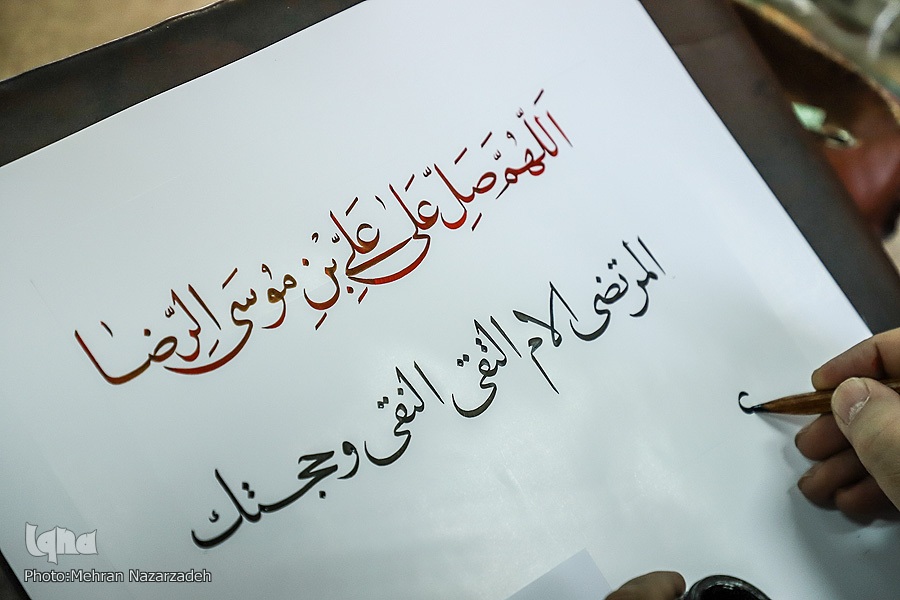 اَللّهُمَّ صَلِّ عَلى عَلِيِّ بْنِ مُوسَى الرِّضا
المرتضی الام التقی النقی وحجتك
Iqna
Photo:Mehran Nazarzadeh